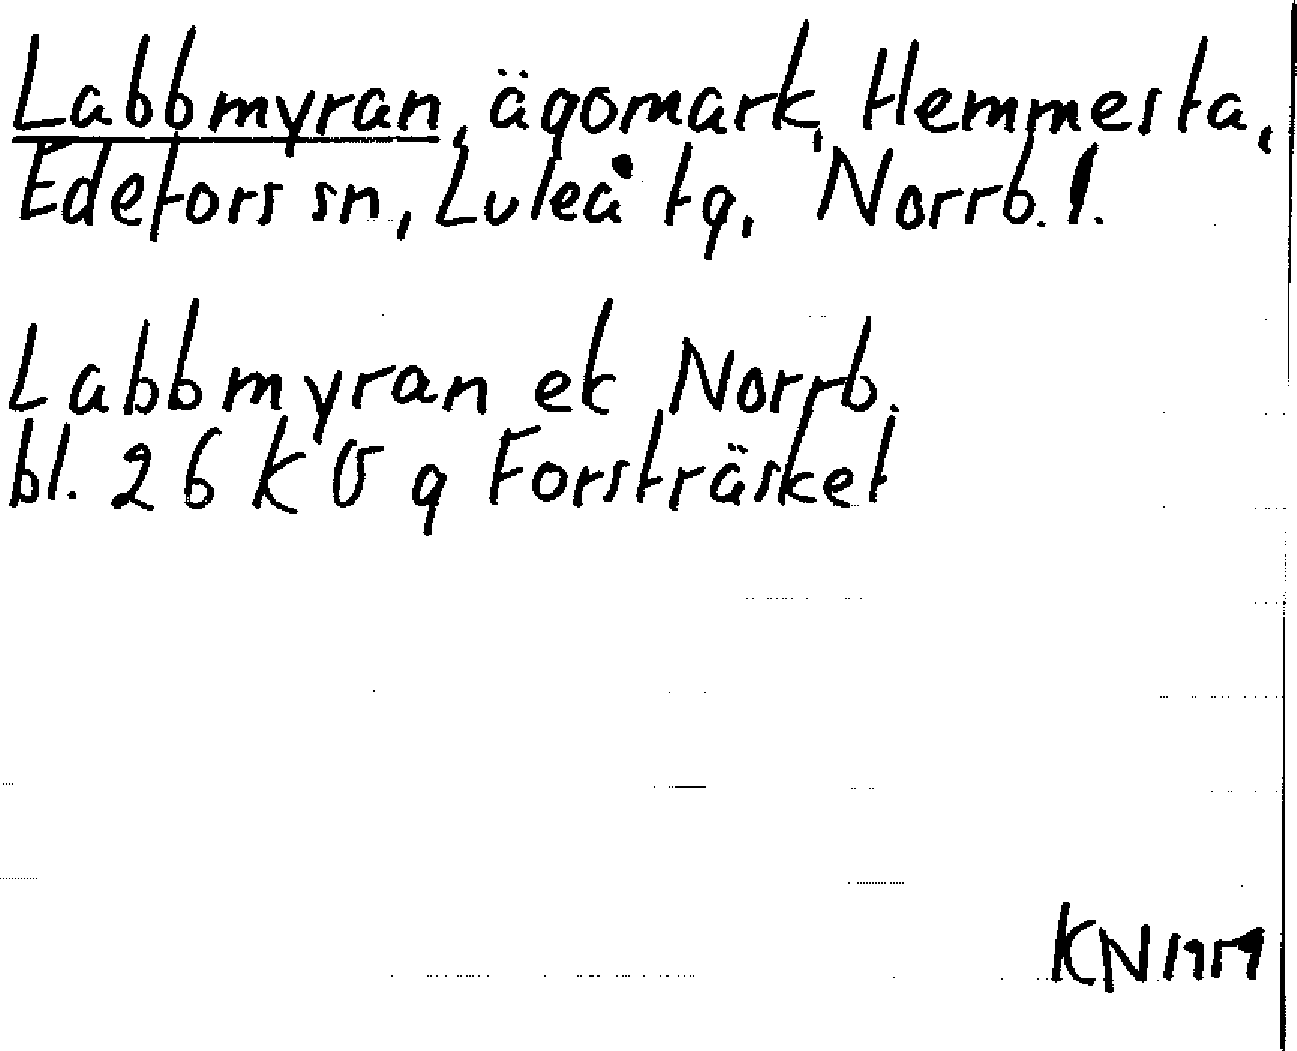 Labbmyran, ägomark, Hemmesta,
Edefors sn, Luleå tg, Norrb. l.
Labbmyran ek Norrb.
bl. 26 K V g Forsträsket
KN 1959